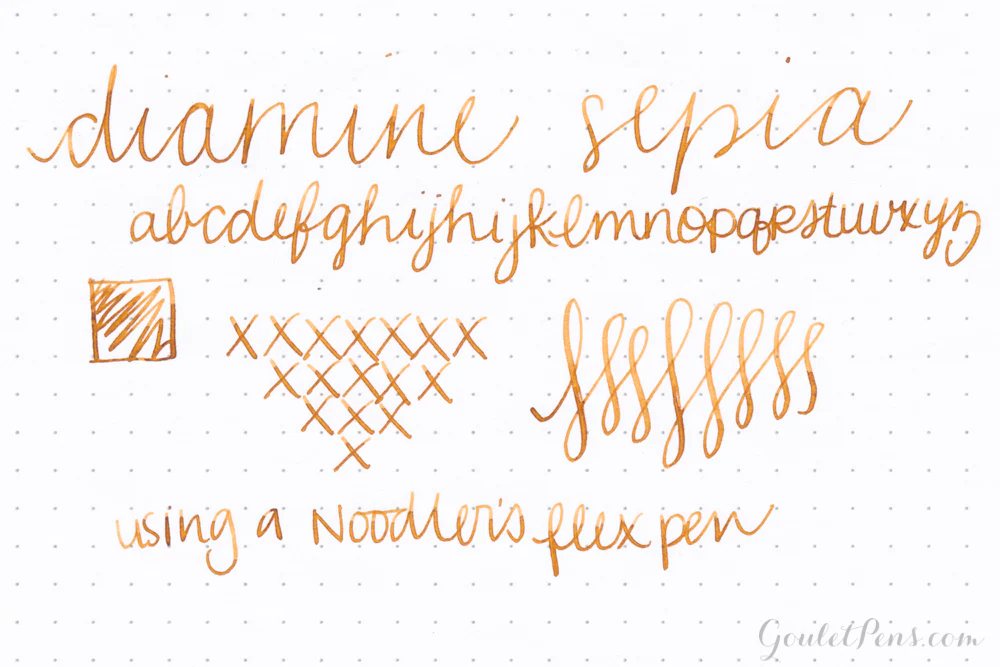 diamine sepia
abcdefghijhijklmnopqrstuvwxyz
using a Noodler's flex pen
GouletPens.com